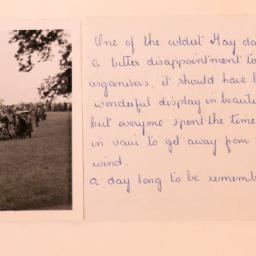 One of the coldest May da
a bitter disappointment to
organisers, it should have b
wonderful display in beaute
but everyone spent the time
in vain to get away from
wind.
a day long to be remembe